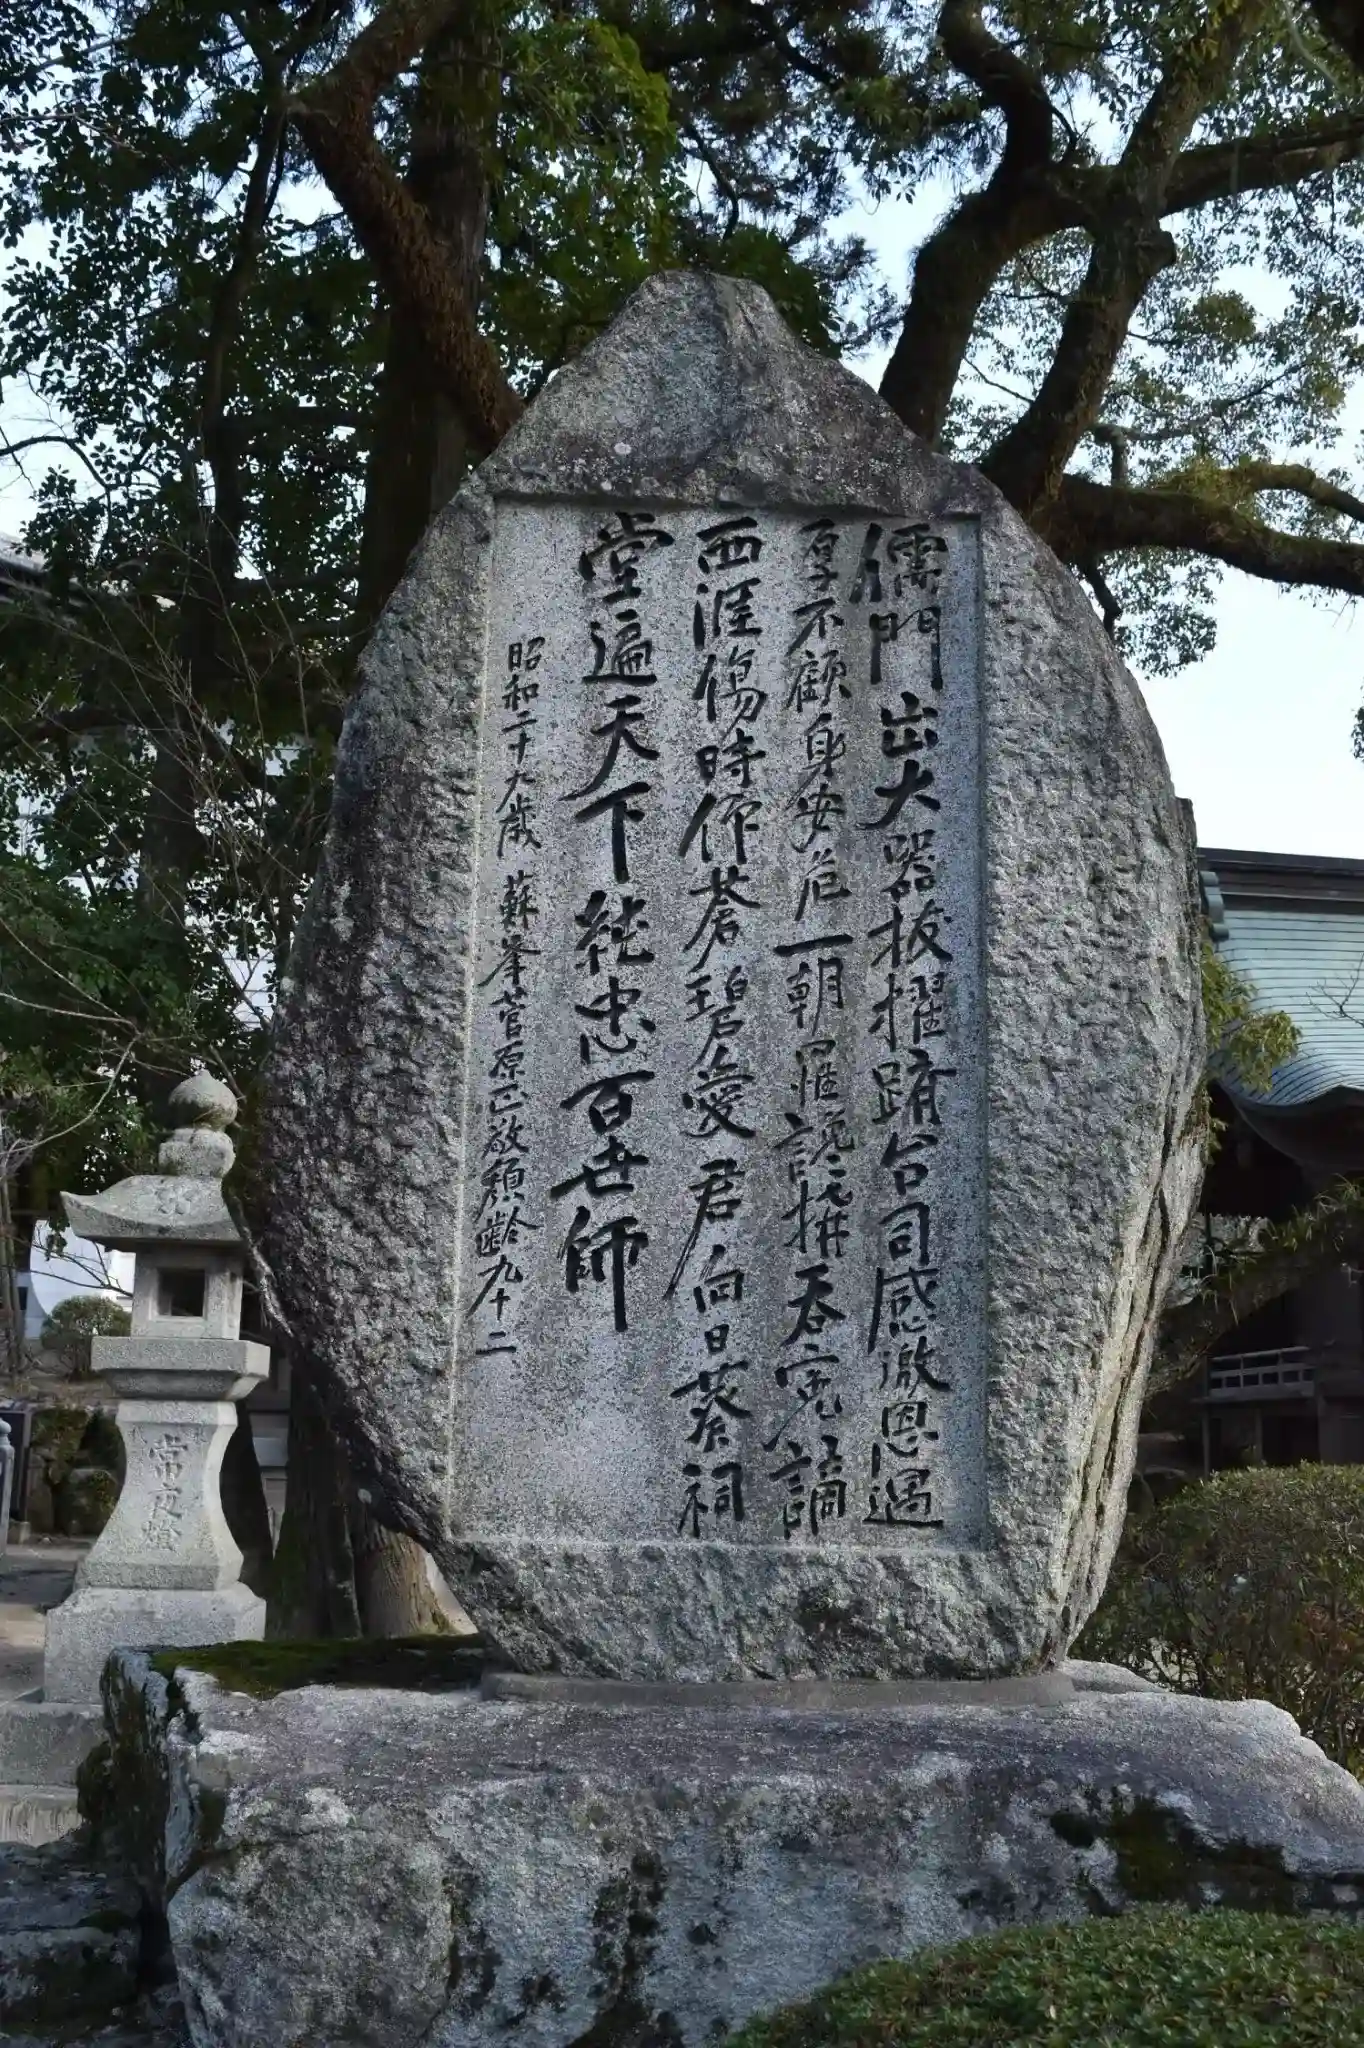 儒門出大器抜擢躋台司感激恩遇
厚不顧身安危一朝罹讒構呑冤謫
西涯傷時仰蒼碧愛君向日葵祠
堂遍天下純忠百世師
昭和二十九歳 蘇峯菅原正敬頽齢九十二
常夜燈